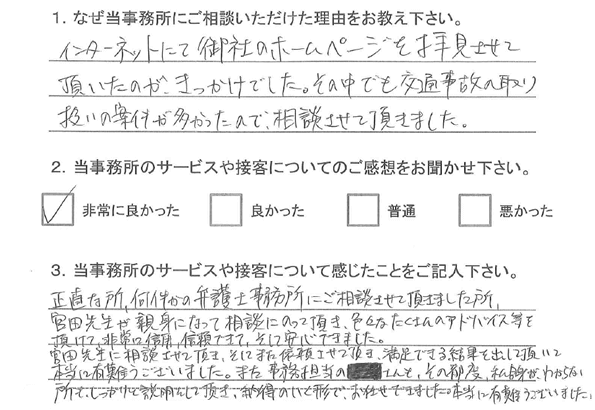 1. なぜ当事務所にご相談いただけた理由をお教え下さい。
インターネットにて御社のホームページを拝見させて
頂いたのが、きっかけでした。その中でも交通事故の取り
扱いの案件が多かったので、相談させて頂きました。
2. 当事務所のサービスや接客についてのご感想をお聞かせ下さい。
非常に良かった 良かった 普通 悪かった
3. 当事務所のサービスや接客について感じたことをご記入下さい。
正直な所、何件かの弁護士事務所にご相談させて頂きました所、
宮田先生が親身になって相談にのって頂き、色々なたくさんのアドバイス等を
頂けて、非常に信用、信頼できて、そして安心できました。
宮田先生に相談させて頂き、そしてまた依頼させて頂き、満足できる結果を出して頂いて
本当に有難うございました。また事務担当の さんも、その都度、私共がわからない
所を、しっかりと説明して頂き、納得のいく形で、お任せできました。本当に有難うございました。